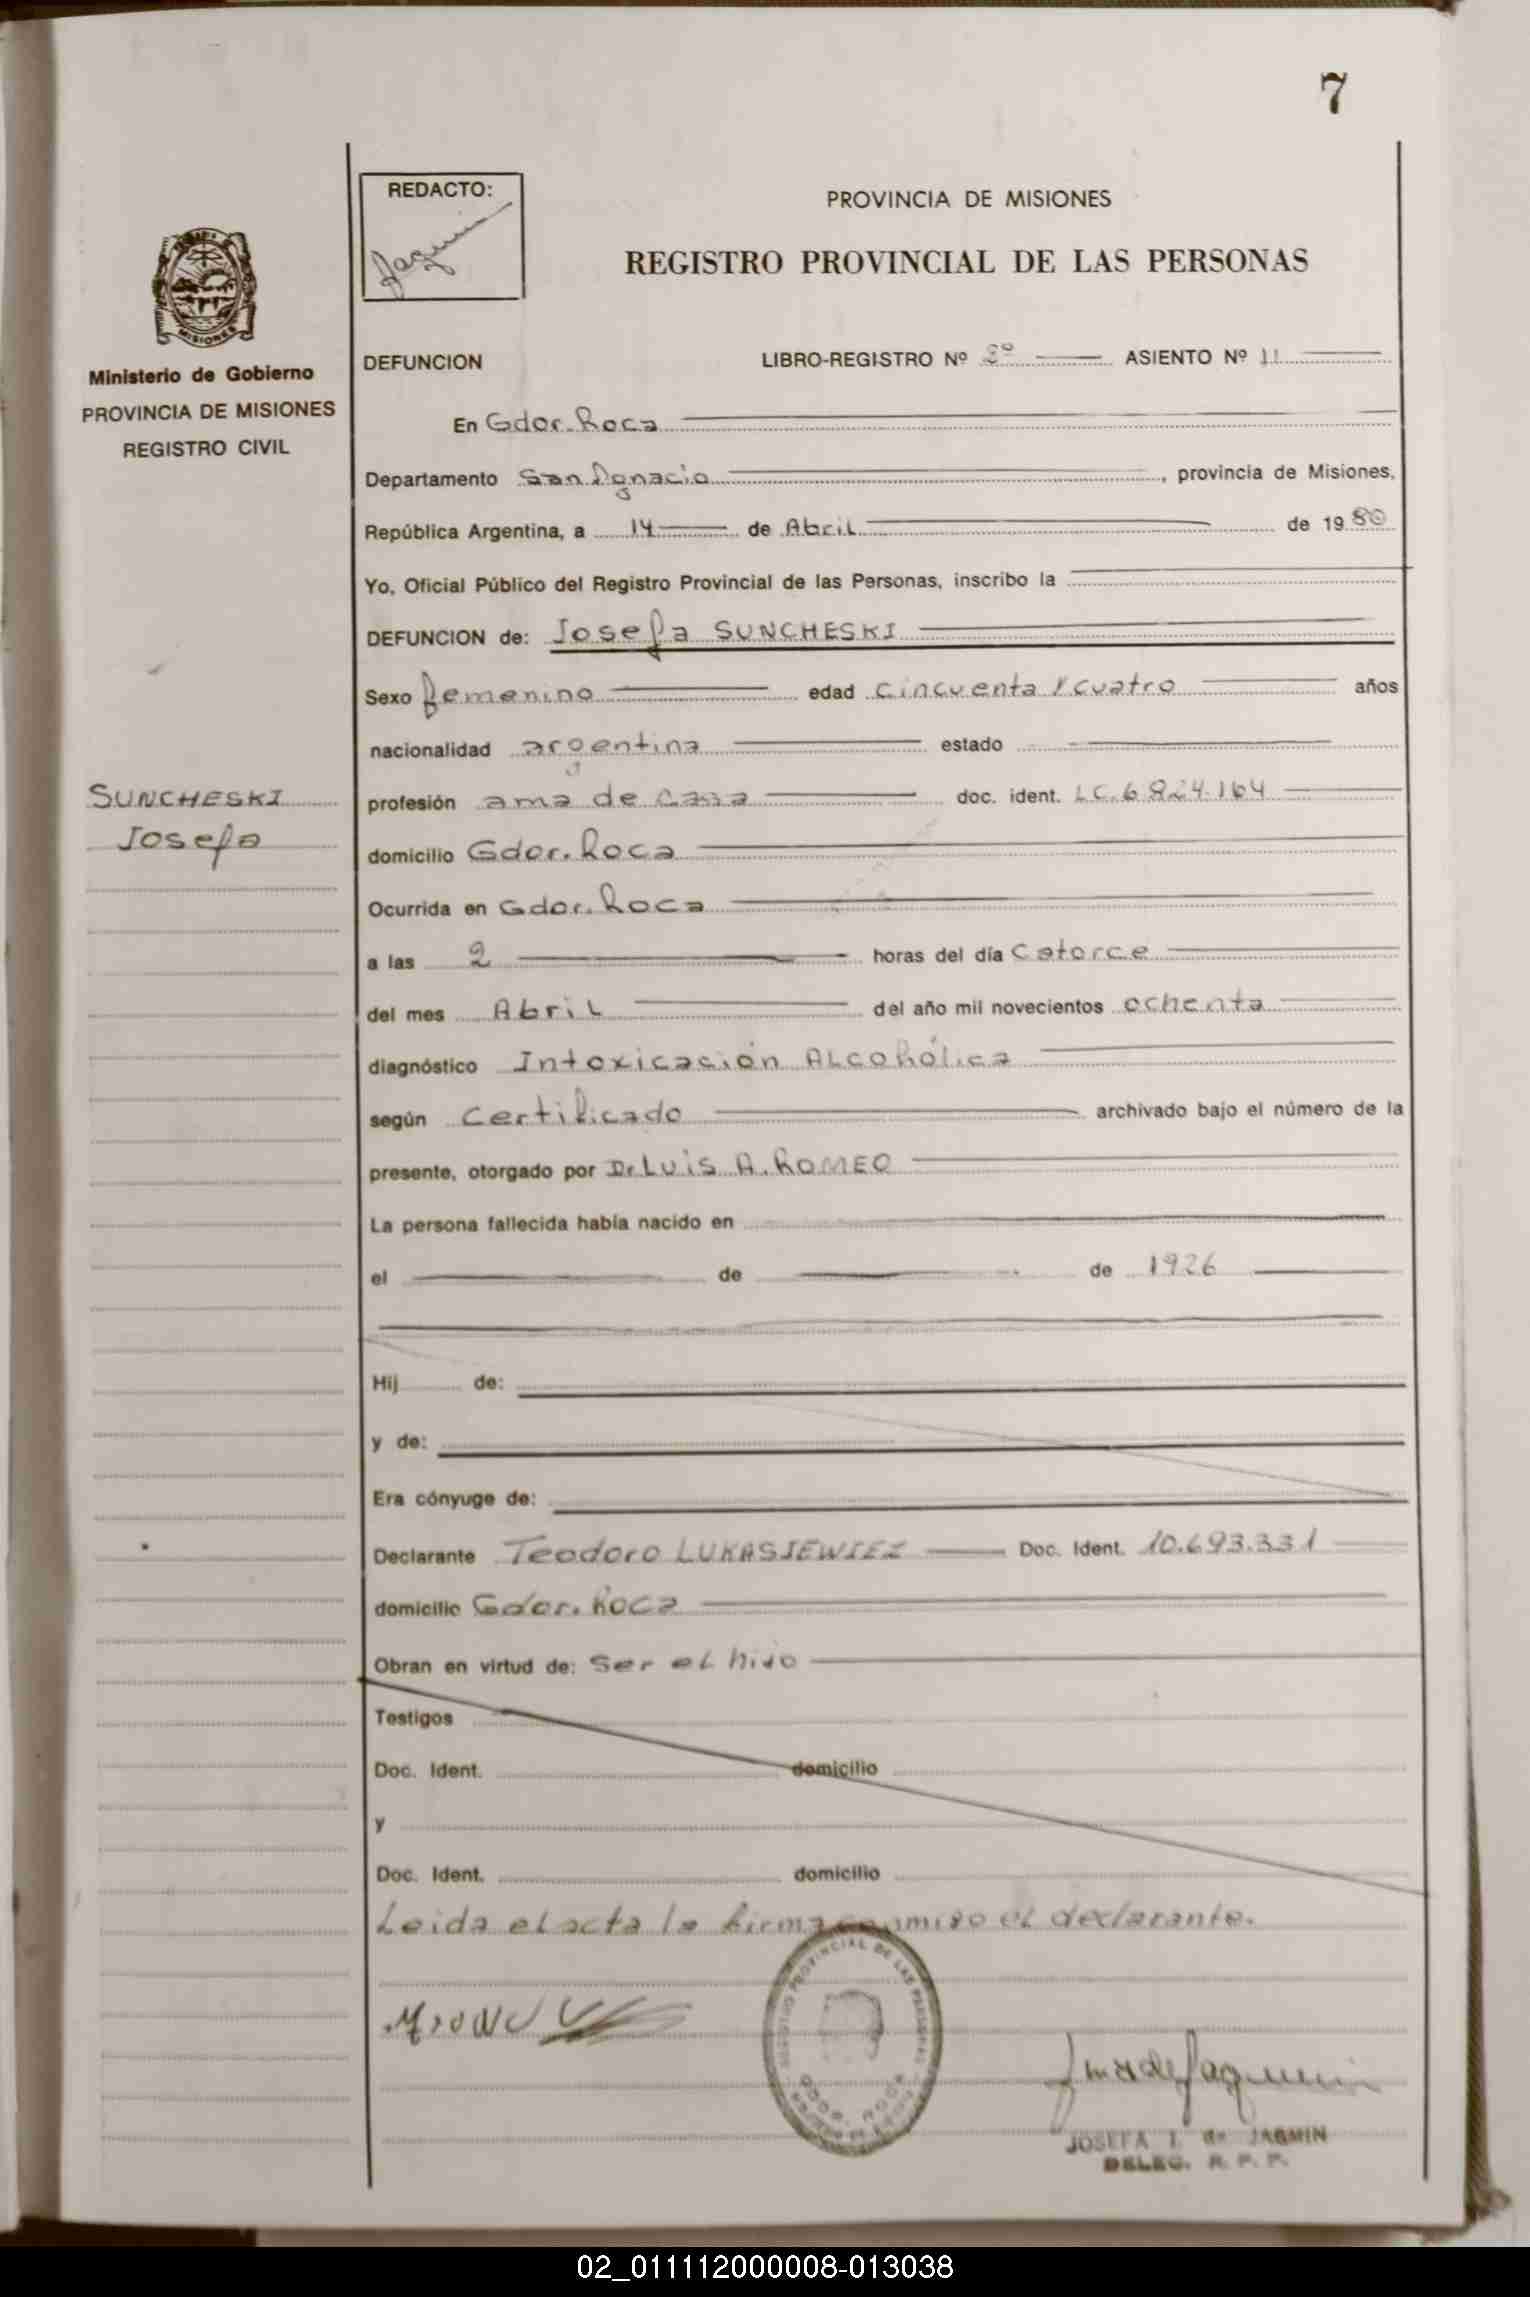 7
REDACTO:
Jaqmin
PROVINCIA DE MISIONES
REGISTRO PROVINCIAL DE LAS PERSONAS
MISIONES
Ministerio de Gobierno
PROVINCIA DE MISIONES
REGISTRO CIVIL
DEFUNCION LIBRO-REGISTRO Nº 2º ASIENTO Nº 11
En Gdor. Roca
Departamento San Ignacio, provincia de Misiones,
República Argentina, a 14 de Abril de 1980
Yo, Oficial Público del Registro Provincial de las Personas, inscribo la
DEFUNCION de: Josefa SUNCHESKI
Sexo femenino edad cincuenta y cuatro años
nacionalidad argentina estado
SUNCHESKI
Josefa
profesión ama de casa doc. ident. LC. 6 824.164
domicilio Gdor. Roca
Ocurrida en Gdor. Roca
a las 2 horas del día Catorce
del mes Abril del año mil novecientos ochenta
diagnóstico Intoxicación ALcohólica
según Certificado archivado bajo el número de la
presente, otorgado por Dr. LUIS A. ROMEO
La persona fallecida había nacido en
el de de 1926
Hij de:
y de:
Era cónyuge de:
Declarante Teodoro LUKASIEWIEZ Doc. Ident. 10.693.331
domicilio Gdor. Roca
Obran en virtud de: Ser el hijo
Testigos
Doc. Ident. domicilio
y
Doc. Ident. domicilio
Leida el acta la firma conmigo el declarante.
REGISTRO PROVINCIAL DE LAS PERSONAS
GDOR. ROCA
JOSEFA I. de JAQMIN
DELEG. R. P. P.
02_011112000008-013038